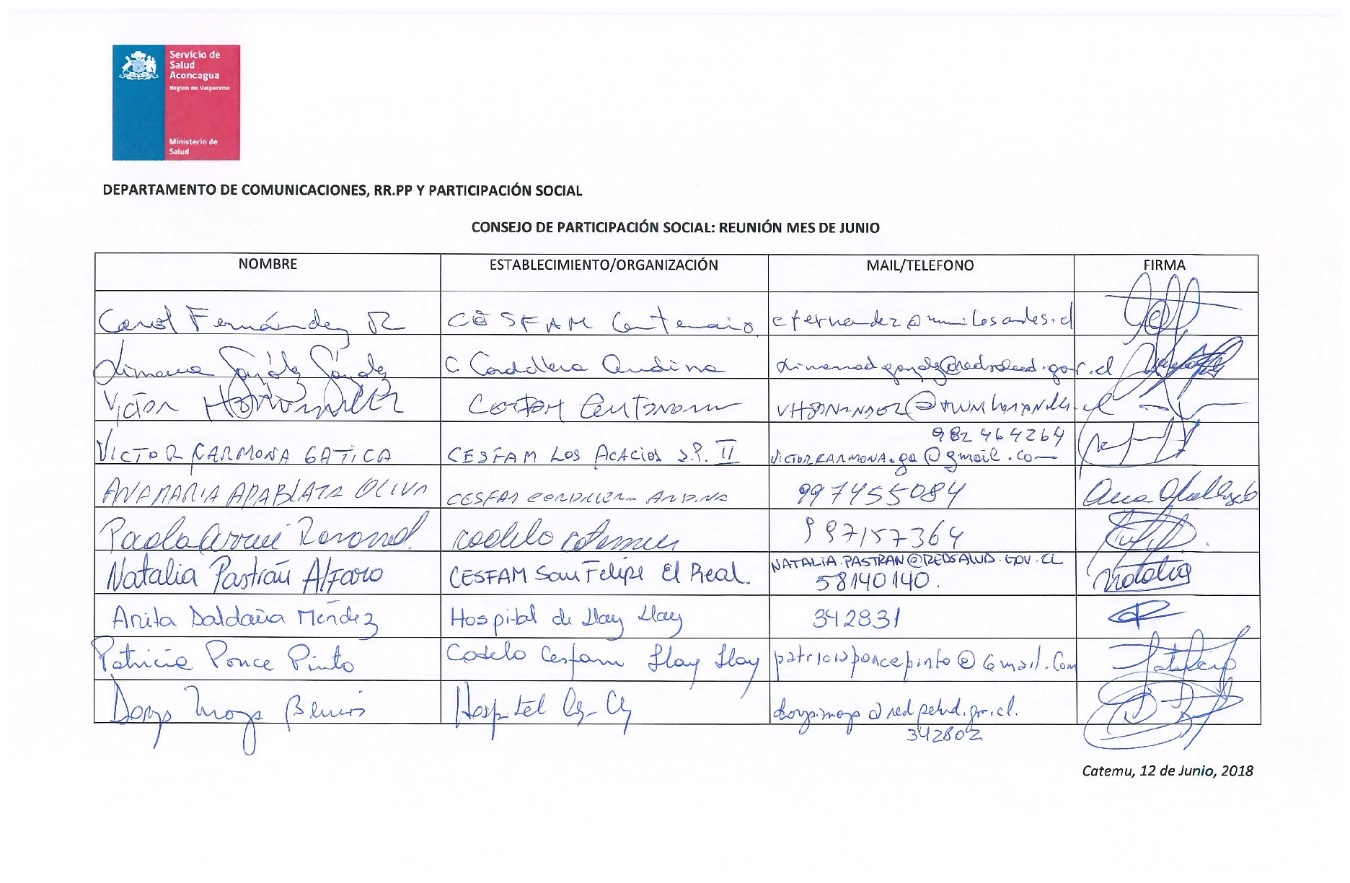 Servicio de
Salud
Aconcagua
Región de Valparaíso
Ministerio de
Salud
DEPARTAMENTO DE COMUNICACIONES, RR.PP Y PARTICIPACIÓN SOCIAL
CONSEJO DE PARTICIPACIÓN SOCIAL: REUNIÓN MES DE JUNIO
NOMBRE ESTABLECIMIENTO/ORGANIZACIÓN MAIL/TELEFONO FIRMA
Carol Fernández R CESFAM Centenario cfernandez@munilosandes.cl
C Cordillera Andina
Victor
982464264
VICTOR CARMONA GATICA CESFAM Los Acacios S.P. II victorcarmona.ga@gmail.com
ANA MARIA APABLAZA OLIVA CESFAM CORDILLERA ANDINA 997455084
Paola 997157364
Natalia Pastrañ Alfaro CESFAM San Felipe El Real. NATALIA.PASTRAN@REDSALUD.GOV.CL Natalia
58140140.
Anita Saldaña Méndez Hospital de Llay Llay 342831
Patricia Ponce Pinto Codelo Cesfam Llay Llay patriciaponcepinto@Gmail.Com
Hospital
342802
Catemu, 12 de Junio, 2018